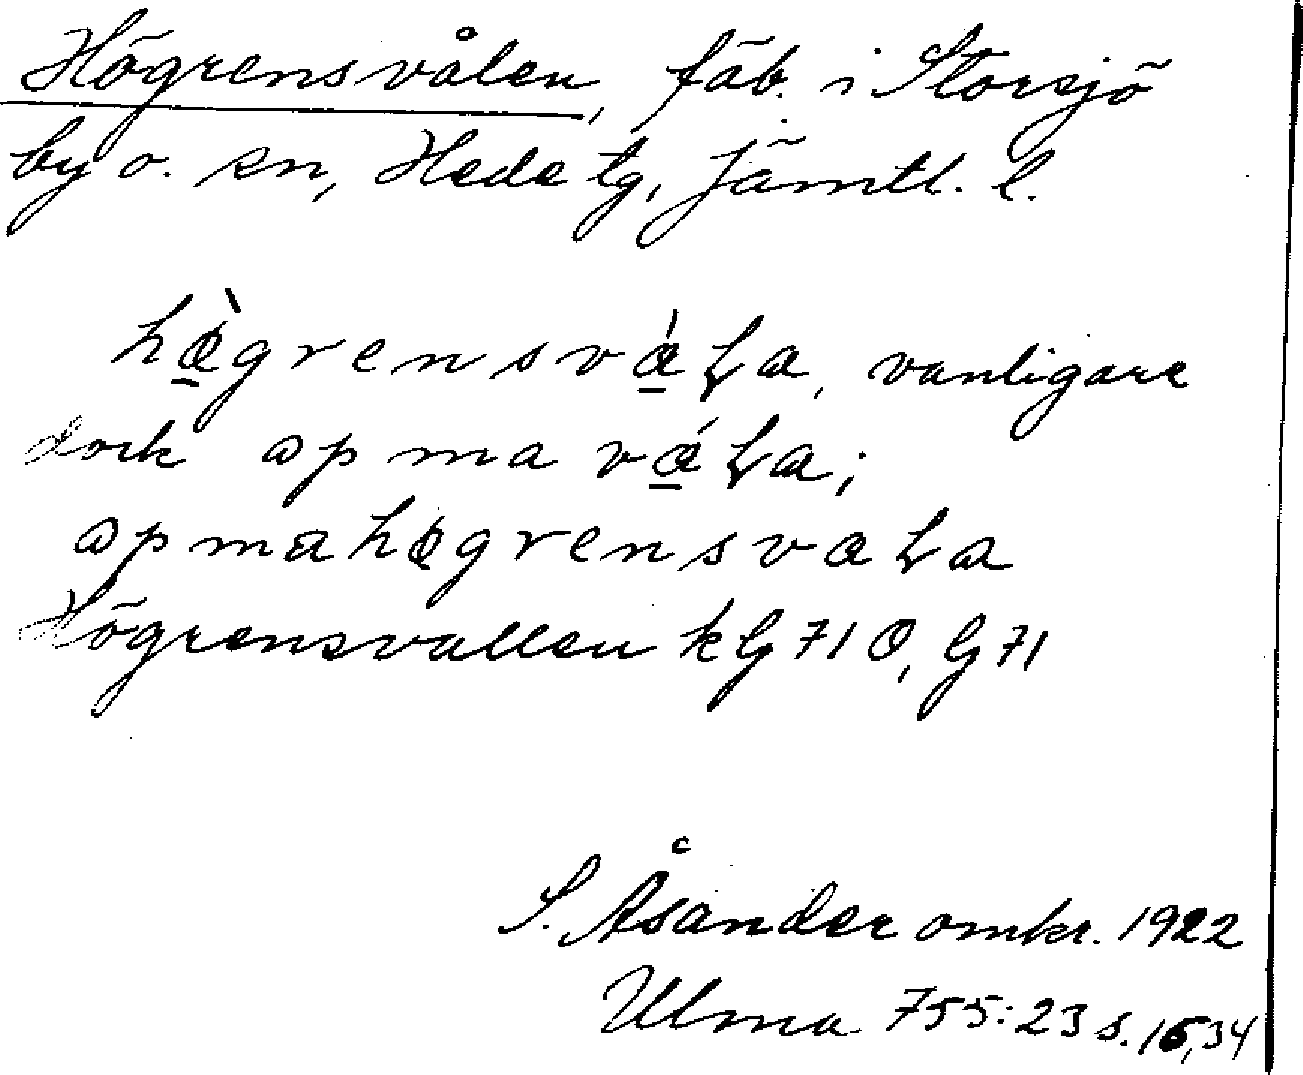 Högrensvålen, fäb. i Storsjö
by o. sn, Hede tg, Jämtl. l.
hø̀grensvǻɽa, vanligare
dock øpma vǻɽa;
øpmahøgrensvaɽa
Högrensvallen kG 71 O, G 71
S. Åsander omkr. 1922
Ulma 755:23 s. 16, 34